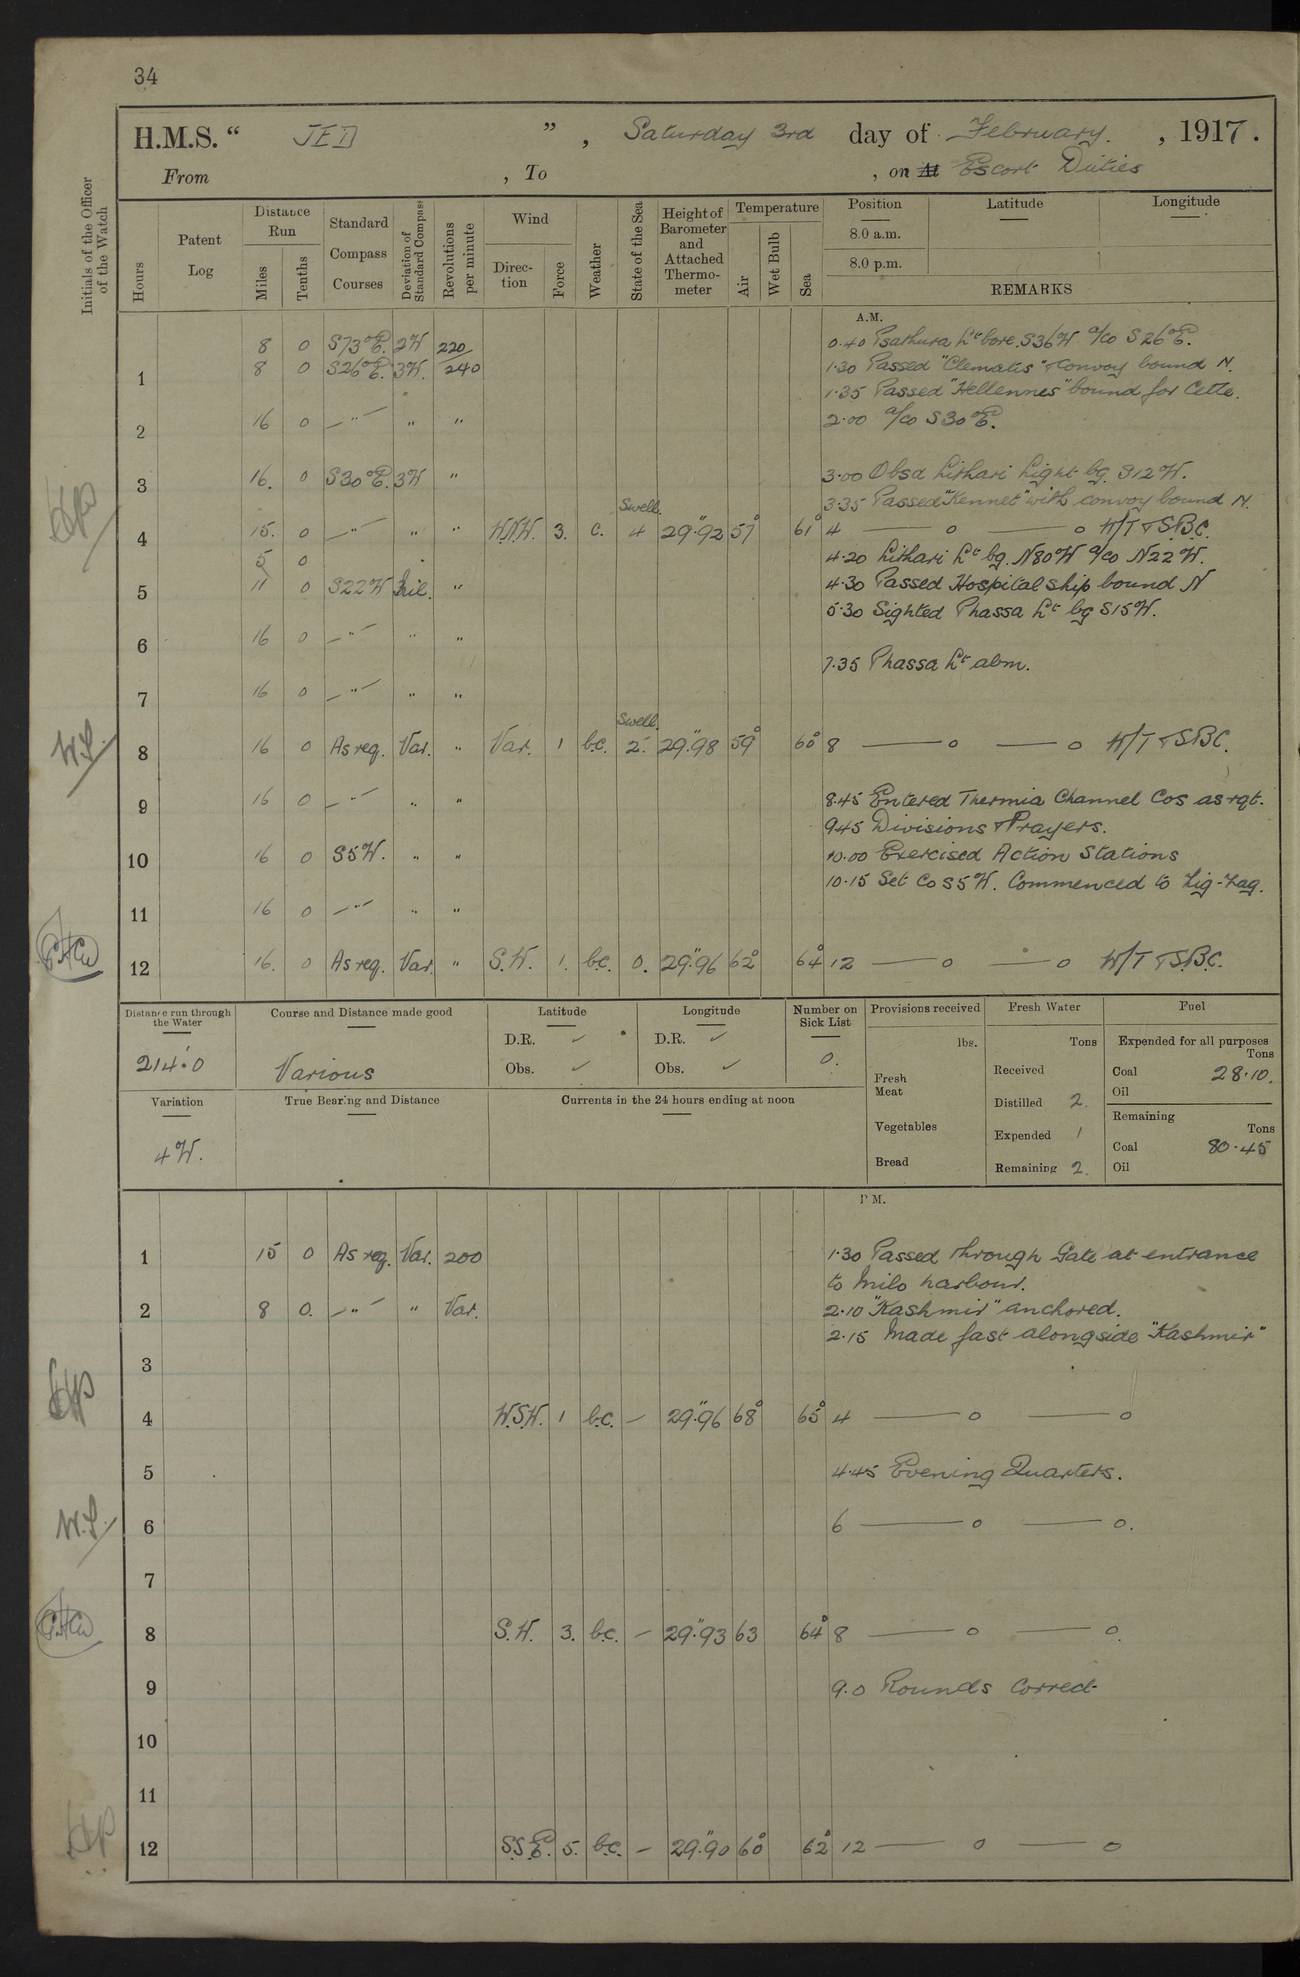 34
H.M.S. “ JED ” , Saturday 3rd day of February. , 1917.
From , To , on At Escort Duties
Initials of the Officer of the Watch
Hours
Patent Log
Distance Run
Miles
Tenths
Standard Compass Courses
Deviation of Standard Compass
Revolutions per minute
Wind
Direction
Force
Weather
State of the Sea
Height of Barometer and Attached Thermometer
Temperature
Air
Wet Bulb
Sea
Position Latitude Longitude
8.0 a.m.
8.0 p.m.
REMARKS
A.M.
8 0 S73°E. 2W 220 0.40 Psathura Lt bore S36W a/co S26°E.
1 8 0 S26°E. 3W. 240 1.30 Passed "Clematis" & convoy bound N.
1.35 Passed "Hellennes" bound for Cette.
2 16 0 — " — " " 2.00 a/co S30°E.
3 16. 0 S30°E. 3W " 3.00 Obsd Lithari Light bg. S12W.
3.35 Passed "Kennet" with convoy bound N.
Swell.
4 15. 0 — " — " " W.N.W. 3. c. 4 29".92 57° 61° 4 — o — o W/T & S.B.C.
5 0 4.20 Lithari Lt bg. N80W a/co N22W.
5 11 0 S22W Nil. " 4.30 Passed Hospital ship bound N
5.30 Sighted Phassa Lt bg S15W.
6 16 0 — " — " "
7.35 Phassa Lt abm.
7 16 0 — " — " "
Swell.
W.S. 8 16 0 As req. Var. " Var. 1 b.c. 2. 29".98 59° 60° 8 — o — o W/T & S.B.C.
9 16 0 — " — " " 8.45 Entered Thermia Channel Cos as rqt.
9.45 Divisions & Prayers.
10 16 0 S5W. " " 10.00 Exercised Action Stations
10.15 Set Co S5W. Commenced to Zig-Zag.
11 16 0 — " — " "
12 16. 0 As req. Var. " S.W. 1. b.c. 0. 29".96 62° 64° 12 — o — o W/T & S.B.C.
Distance run through the Water
214.0
Course and Distance made good
Various
Latitude
D.R. ✓
Obs. ✓
Longitude
D.R. ✓
Obs. ✓
Number on Sick List
0.
Variation
4W.
True Bearing and Distance
Currents in the 24 hours ending at noon
Provisions received
lbs.
Fresh Meat
Vegetables
Bread
Fresh Water
Tons
Received
Distilled 2.
Expended 1
Remaining 2.
Fuel
Expended for all purposes
Tons
Coal 28.10.
Oil
Remaining
Tons
Coal 80.45
Oil
P M.
1 15 0 As req. Var. 200 1.30 Passed through Gate at entrance
to Milo harbour.
2 8 0. — " — " Var. 2.10 "Kashmir" anchored.
2.15 Made fast alongside "Kashmir"
3
4 W.S.W. 1 b.c. — 29".96 68° 65° 4 — o — o
5 4.45 Evening Quarters.
W.S. 6 6 — o — o.
7
8 S.W. 3. b.c. — 29".93 63 64° 8 — o — o.
9 9.0 Rounds Correct
10
11
12 S.S.E. 5. b.c. — 29".90 60° 62° 12 — o — o